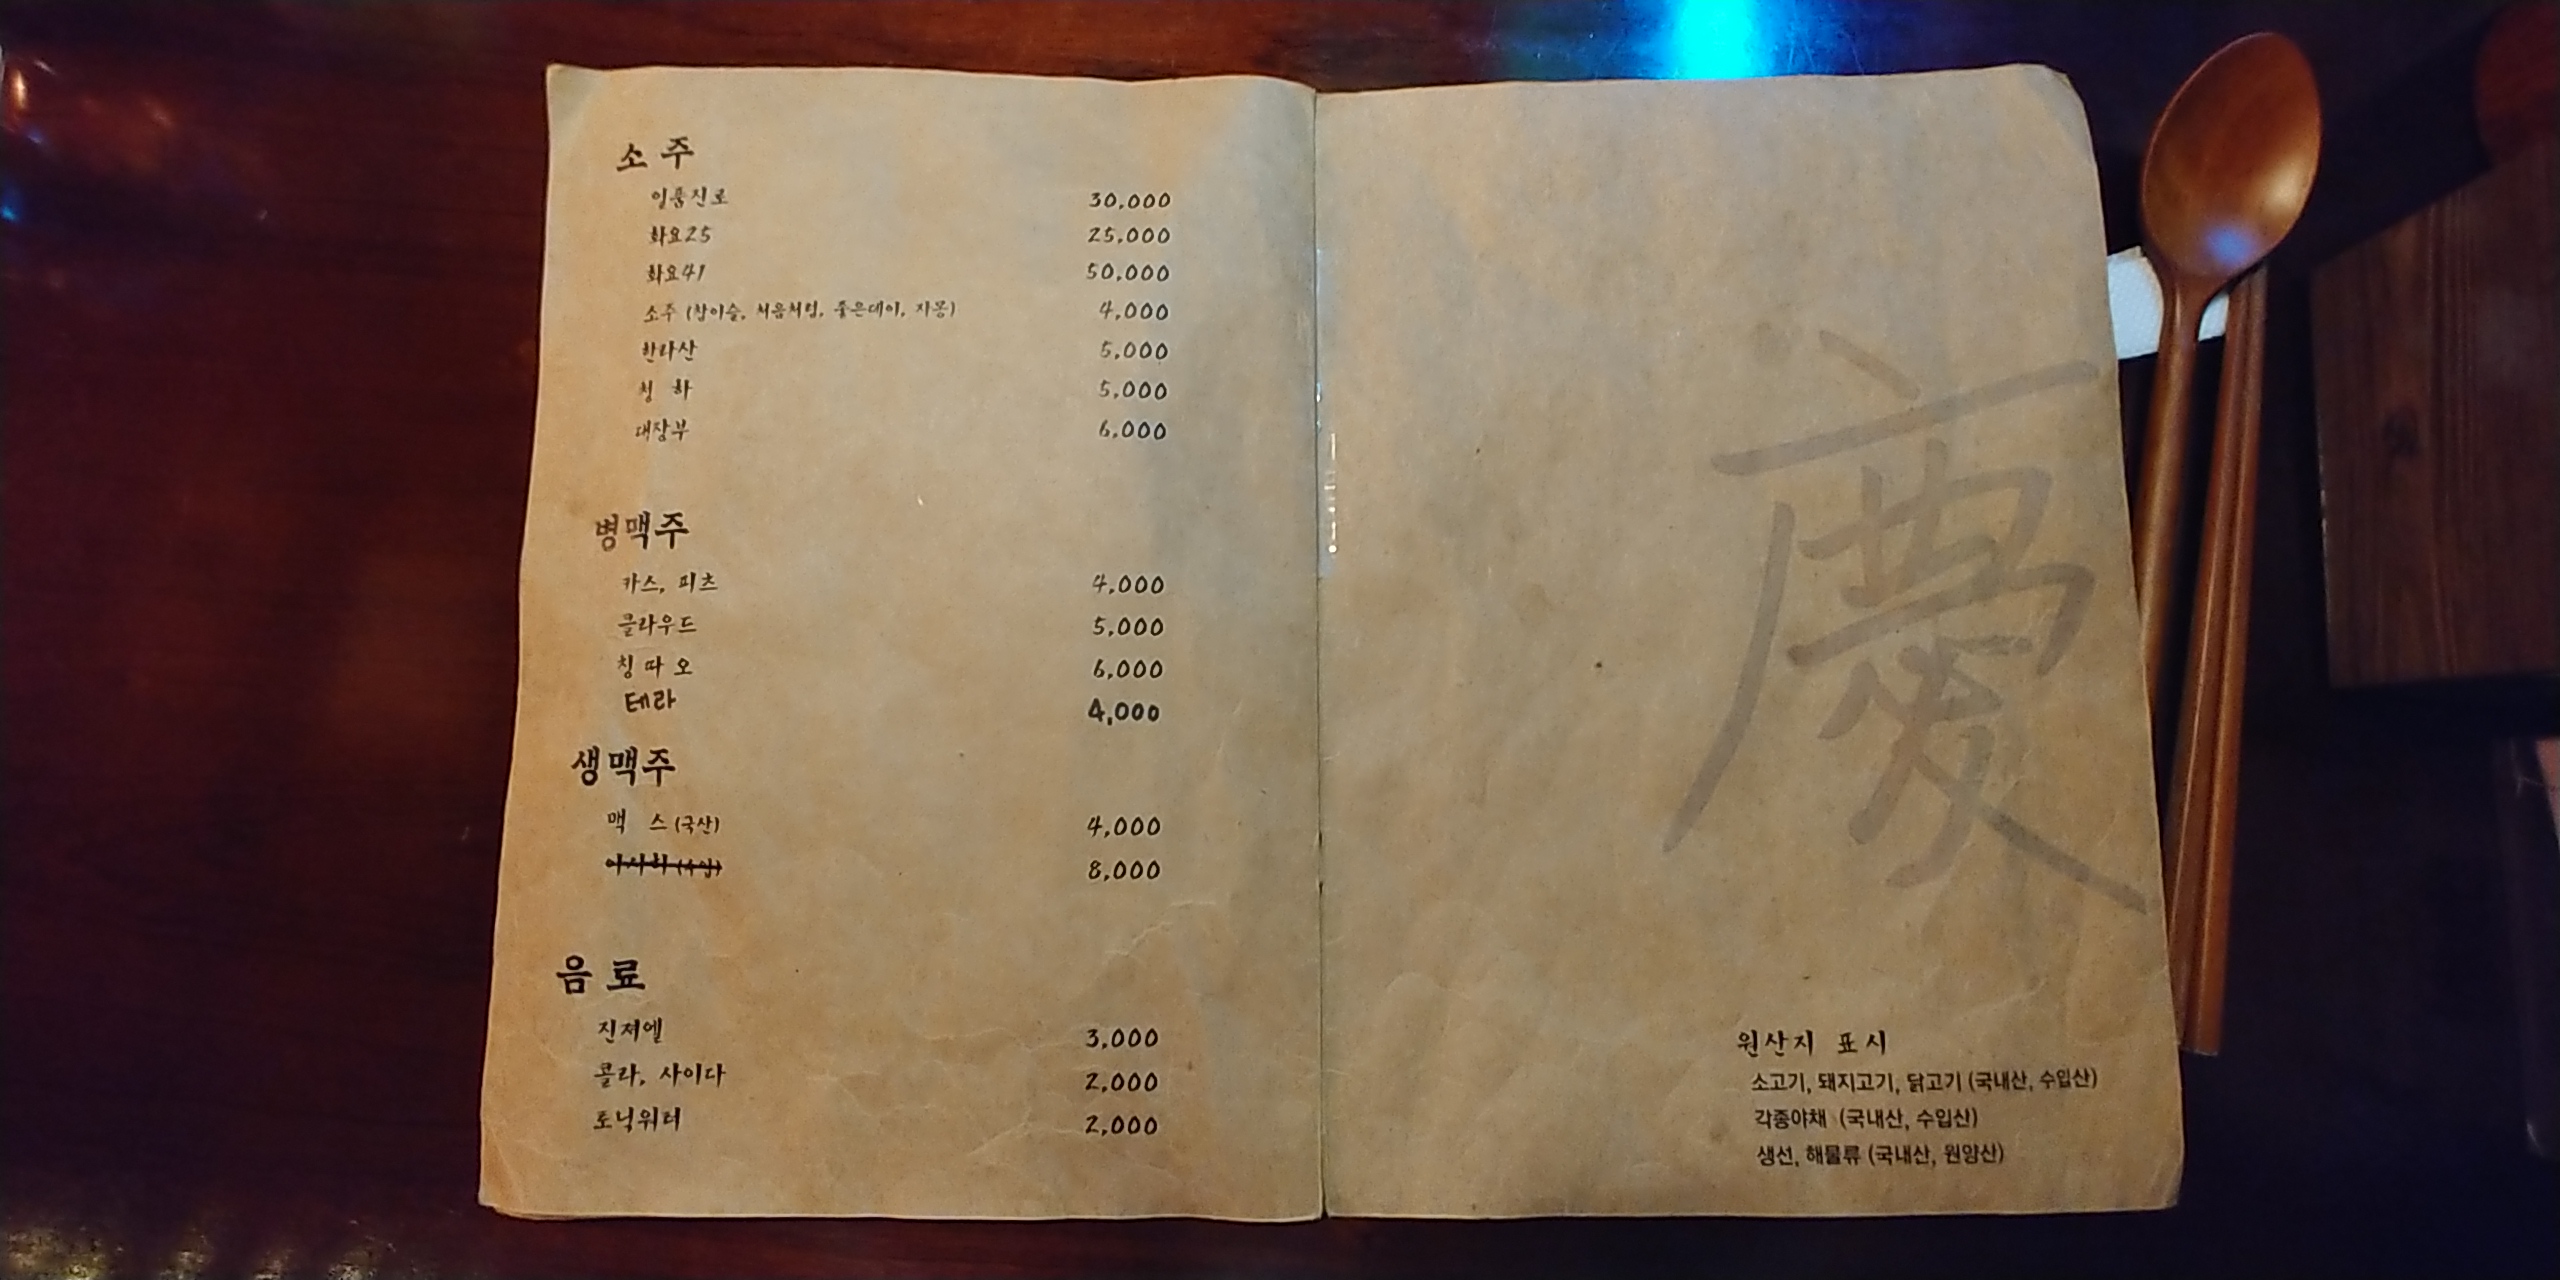 소 주
일품진로 30,000
화요25 25,000
화요41 50,000
소주 (참이슬, 처음처럼, 좋은데이, 자몽) 4,000
한라산 5,000
청 하 5,000
대장부 6,000
병맥주
카스, 피츠 4,000
클라우드 5,000
칭따오 6,000
테라 4,000
생맥주
맥 스 (국산) 4,000
아사히 (수입) 8,000
음 료
진저엘 3,000
콜라, 사이다 2,000
토닉워터 2,000
慶
원산지 표시
소고기, 돼지고기, 닭고기 (국내산, 수입산)
각종야채 (국내산, 수입산)
생선, 해물류 (국내산, 원양산)